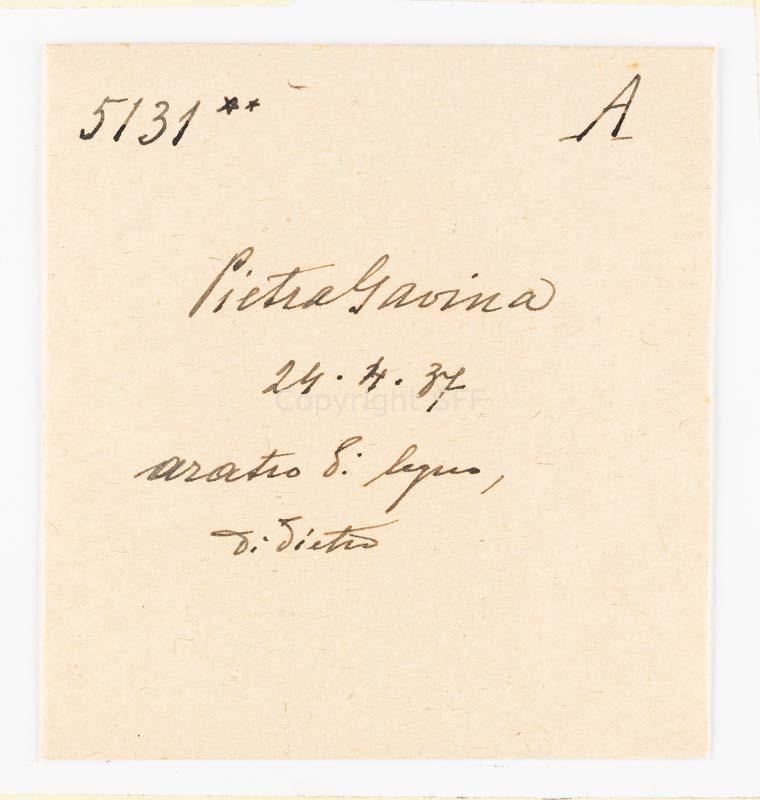 5131** A
Pietra Gavina
24.4.37
Copyright SFF
aratro di legno,
di dietro